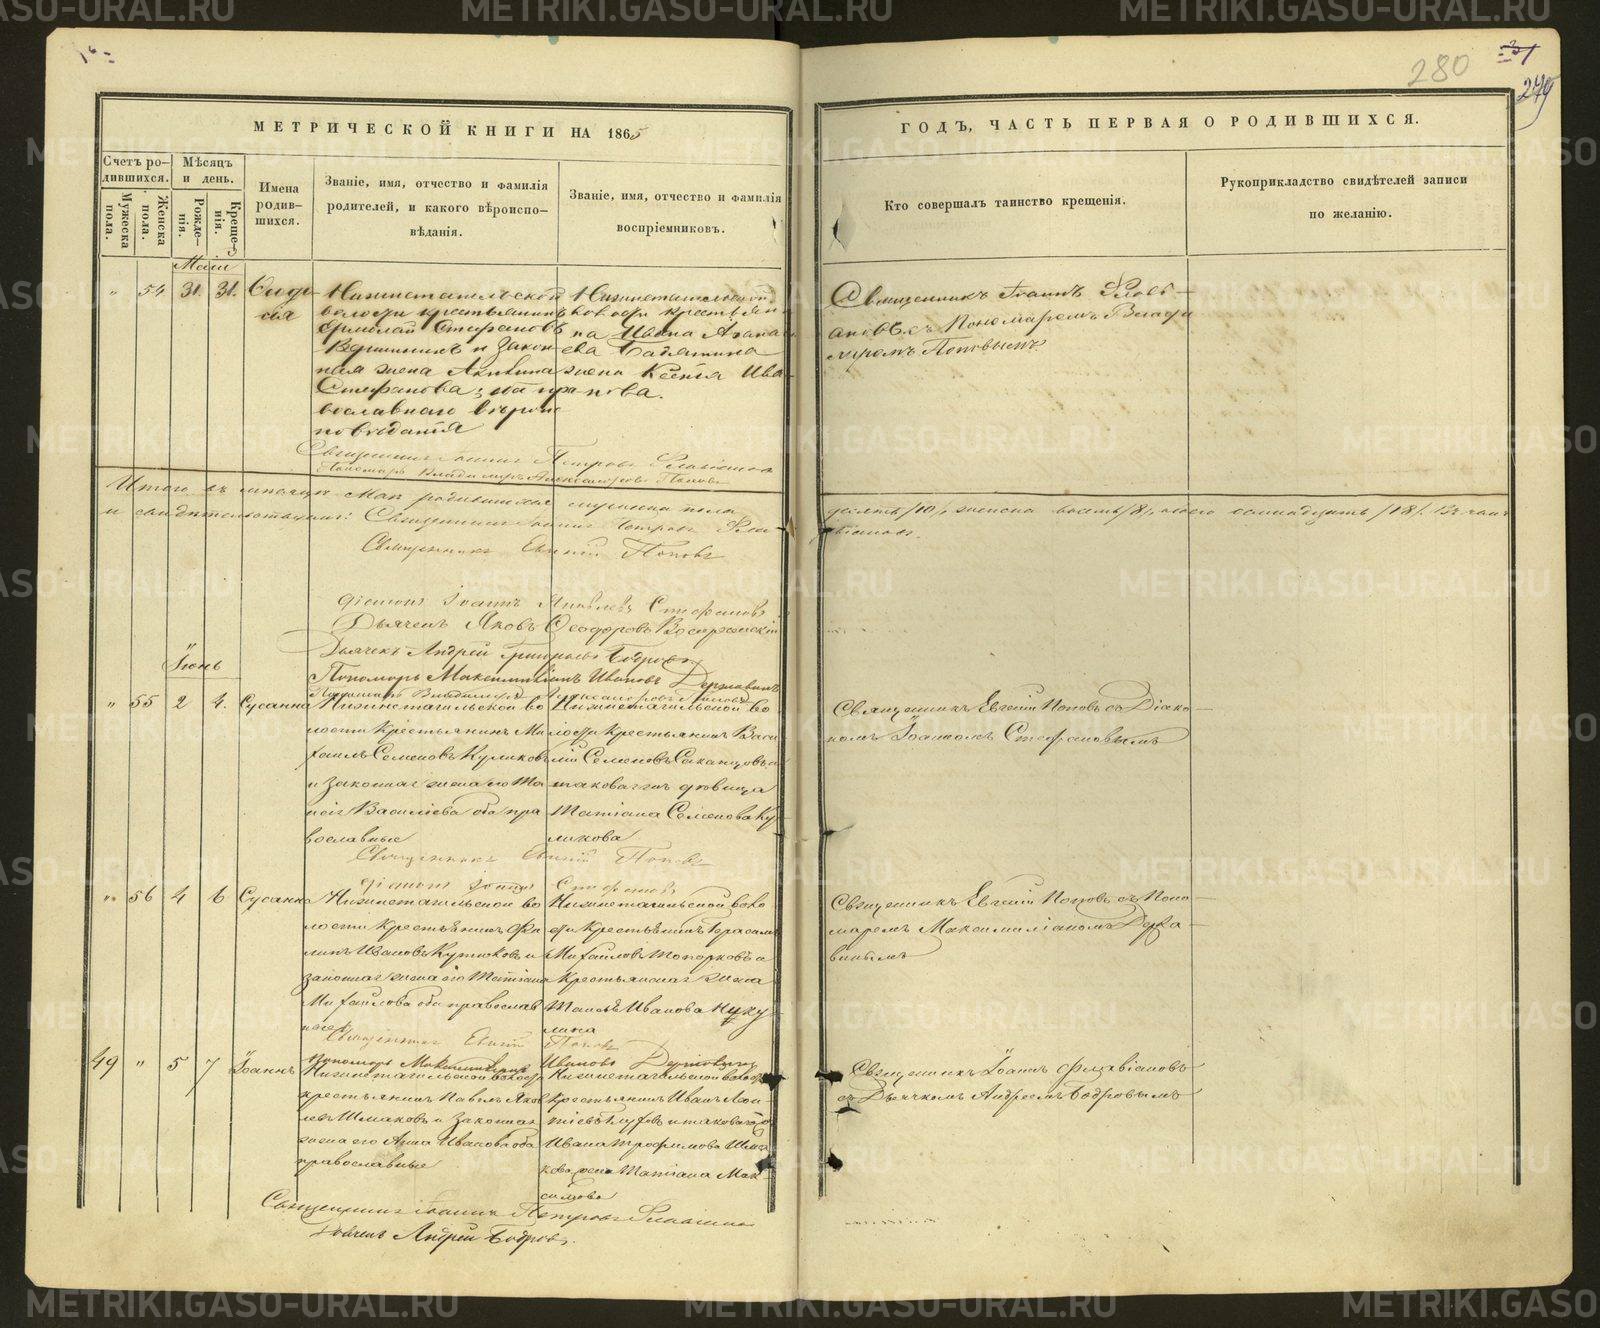 280
279
МЕТРИЧЕСКОЙ КНИГИ НА 1865
ГОДЪ, ЧАСТЬ ПЕРВАЯ О РОДИВШИХСЯ.
Счетъ ро-
дившихся.
Мужеска
пола.
Женска
пола.
Мѣсяцъ
и день.
Рожде-
нія.
Креще-
нія.
Имена
родив-
шихся.
Званіе, имя, отчество и фамилія
родителей, и какого вѣроиспо-
вѣданія.
Званіе, имя, отчество и фамилія
воспріемниковъ.
Кто совершалъ таинство крещенія.
Рукоприкладство свидѣтелей записи
по желанію.
Маія
" 54 31. 31.
Нижнетагильской
волости крестьянинъ
Стефановъ
и закон
ная жена Акилина
Стефанова; оба пра
вославнаго вѣроис
повѣданія
Нижнетагильской
волости крестьяни
на Ивана
жена Ксенія Ива
нова.
Священникъ Іоаннъ Флаві
ановъ съ Пономаремъ Влади
миромъ Поповымъ.
Священникъ Іоаннъ Петровъ Флавіановъ
Пономарь Владимиръ Александровъ Поповъ
Итого въ мѣсяцѣ Маѣ родившихся мужеска пола
десять /10/, женска восемь /8/, обоего осмнадцать /18/. Въ чемъ
и свидѣтельствуютъ: Священникъ Іоаннъ Петровъ Флавіановъ.
Священникъ Евгеній Поповъ
Діаконъ Іоаннъ Яковлевъ Стефановъ
Дьячекъ Яковъ Ѳеодоровъ
Дьячекъ Андрей Григорьевъ Бодровъ
Пономарь Максимиліанъ Ивановъ Державинъ
Пономарь Владимиръ Александровъ Поповъ
Іюнь
" 55 2 4. Сусанна
Нижнетагильской во
лости Крестьянинъ Ми
хаилъ Семеновъ Куликовъ
и законная жена его Та
Васильева оба пра
вославные
Нижнетагильской во
лости Крестьянинъ Васи
лій Семеновъ
дѣвица
Татіана Семенова Ку
ликова
Священникъ Евгеній Поповъ съ Діако
номъ Іоанномъ Стефановымъ
Священникъ Евгеній Поповъ
Діаконъ Іоаннъ Стефановъ
" 56 4 6 Сусанна
Нижнетагильской во
лости Крестьянинъ Фи
липъ Ивановъ и
законная жена его Татіана
Михайлова оба православ
ные
Нижнетагильской воло
сти Крестьянинъ Герасимъ
Михайловъ Топорковъ и
Крестьянская жена
Ивановa
Священникъ Евгеній Поповъ съ Поно
маремъ Максимиліаномъ Держа
винымъ
Священникъ Евгеній Поповъ
Пономарь Максимиліанъ Ивановъ Державинъ
49 " 5 7 Іоаннъ
Нижнетагильской волости
крестьянинъ Павелъ Яков
левъ Шмаковъ и законная
жена его Анна Иванова оба
православные
Нижнетагильской волости
Крестьянинъ Иванъ
Ивана Трофимова Шма
кова жена Татіана Мак
симова
Священникъ Іоаннъ Флавіановъ
съ Дьячкомъ Андреемъ Бодровымъ
Священникъ Іоаннъ Петровъ Флавіановъ
Дьячекъ Андрей Бодровъ.
METRIKI.GASO-URAL.RU